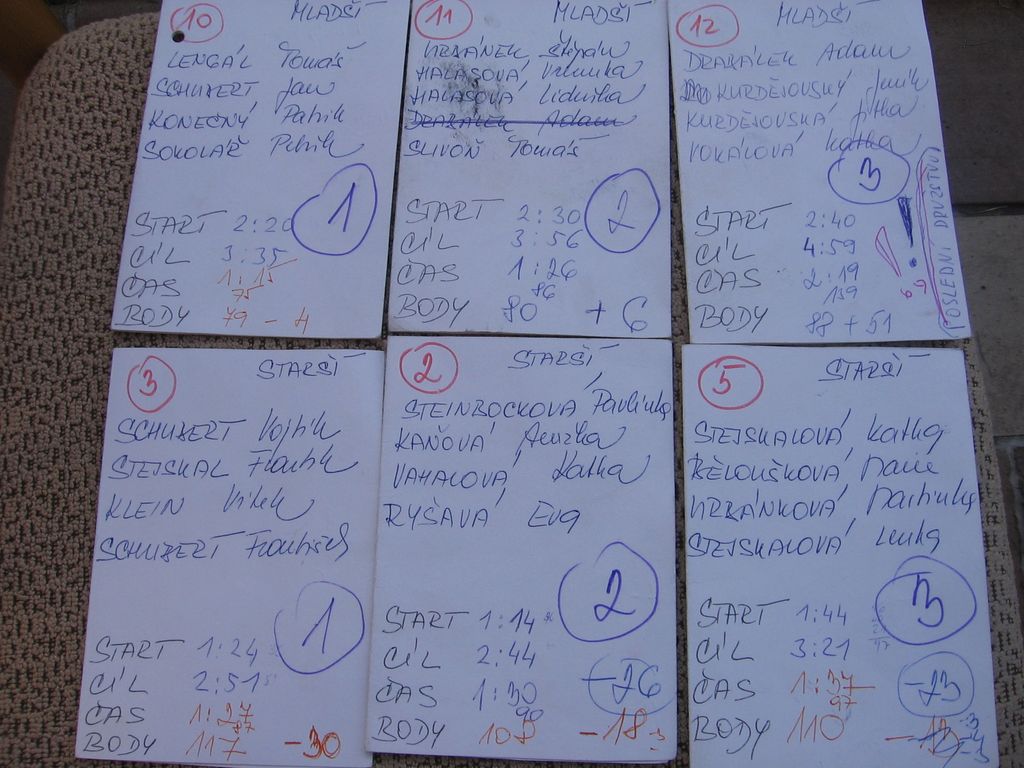 10 MLADŠÍ
LENGÁL Tomáš
SCHUBERT Jan
KONEČNÝ Patrik
SOKOLÁŘ Petrik
1
START 2:20
CÍL 3:35
ČAS 1:15
75
BODY 79 - 4
11 MLADŠÍ
URBÁNEK Štěpán
HALASOVÁ Verunka
HALASOVÁ Liduška
DRABÁLEK Adam
SLIVOŇ Tomáš
2
START 2:30
CÍL 3:56
ČAS 1:26
86
BODY 80 + 6
12 MLADŠÍ
DRABÁLEK Adam
KURDĚJOVSKÝ Jeník
KURDĚJOVSKÁ Jitka
VOKÁLOVÁ Katka
3
START 2:40
CÍL 4:59
ČAS 2:19
139
BODY 88 + 51
POSLEDNÍ DRUŽSTVO
3 STARŠÍ
SCHUBERT Vojtík
STEJSKAL Frantík
KLEIN Vítek
SCHUBERT František
1
START 1:24
CÍL 2:51
ČAS 1:27
87
BODY 117 -30
2 STARŠÍ
STEINBOCKOVÁ Pavlínka
KAŇOVÁ Anežka
VAHALOVÁ Katka
RYŠAVÁ Eva
2
START 1:14
CÍL 2:44
-26
ČAS 1:30
90
BODY 108 -18
5 STARŠÍ
STEJSKALOVÁ Katka
BĚLOUŠKOVÁ Marie
URBÁNKOVÁ Martinka
STEJSKALOVÁ Lenka
3
START 1:44
CÍL 3:21
-23
ČAS 1:37
97
BODY 110